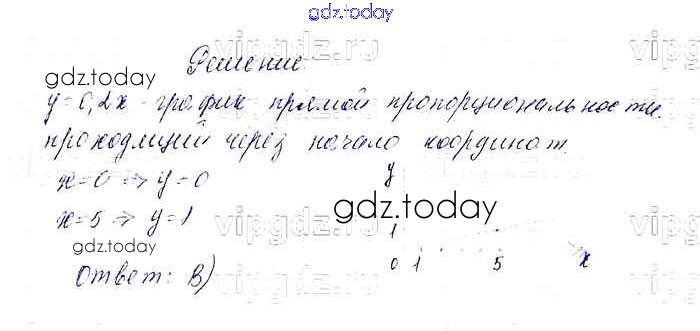 gdz.today
vipgdz.ru
Решение
gdz.today
y=0,2x - график прямой пропорциональности.
проходящий через начало координат.
x=0 ⇒ y=0
y
gdz.today
x=5 ⇒ y=1
1
gdz.today
Ответ: В)
0 1 5 x
vipgdz.ru
vipgdz.ru